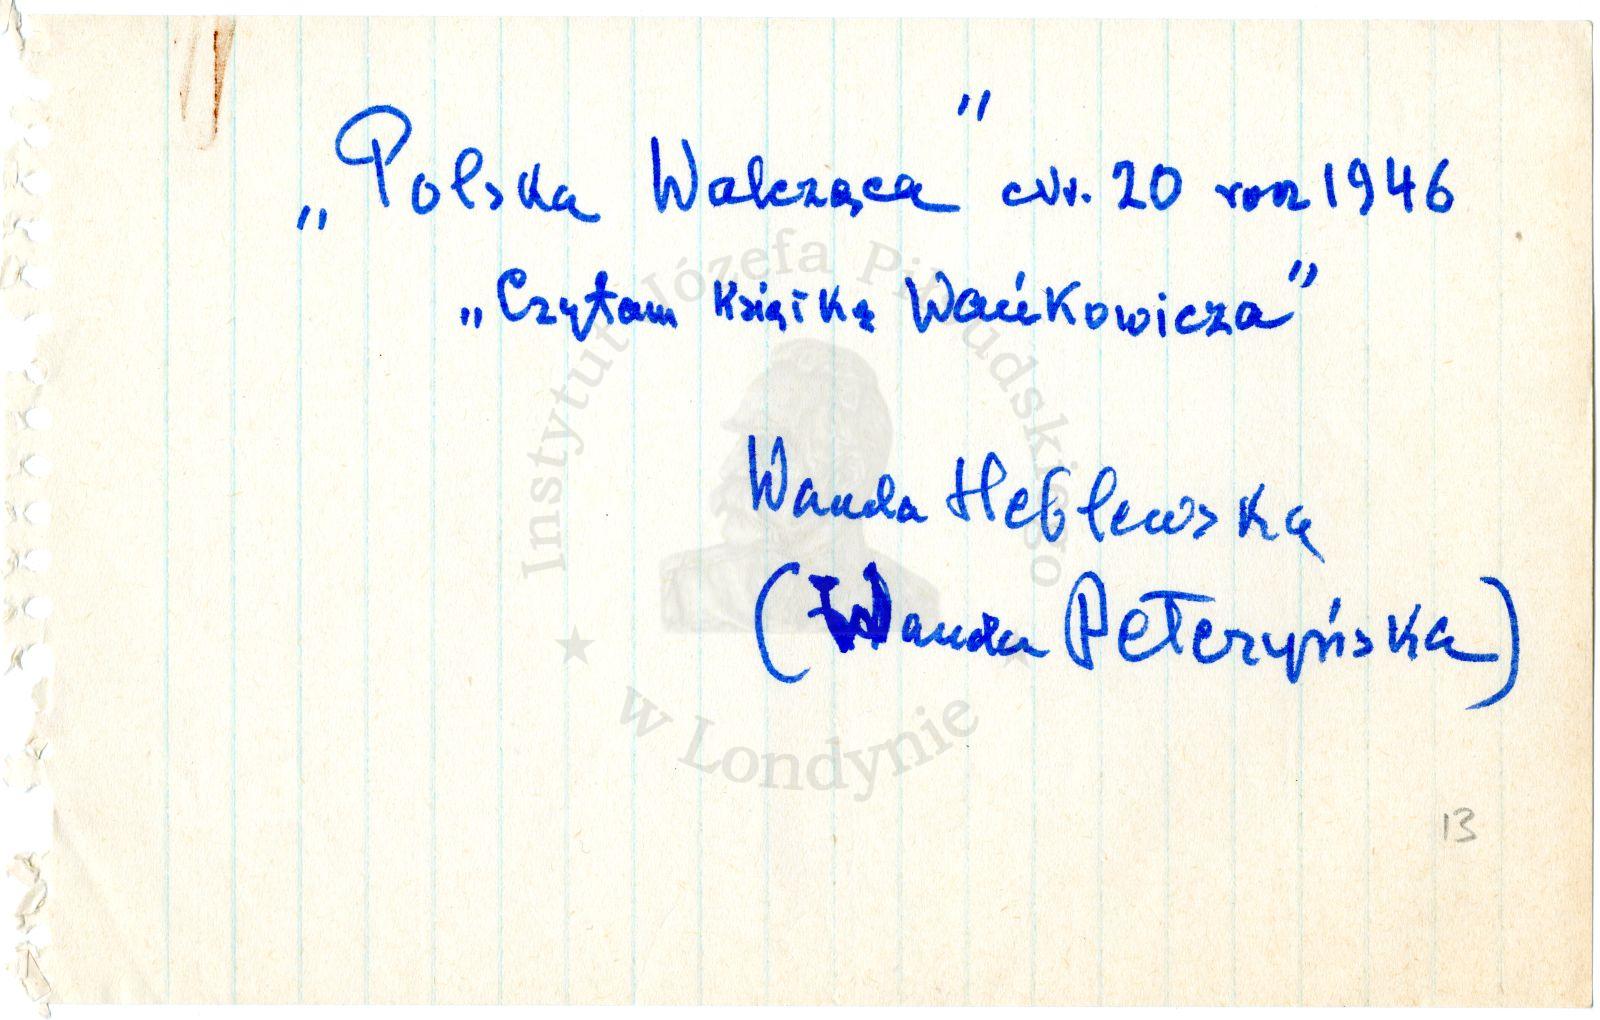 „Polska Walcząca” Nr. 20 rok 1946
„Czytam książkę Wańkowicza”
Wanda Heblewska
(Wanda Pełczyńska)
13
Instytut Józefa Piłsudskiego
w Londynie